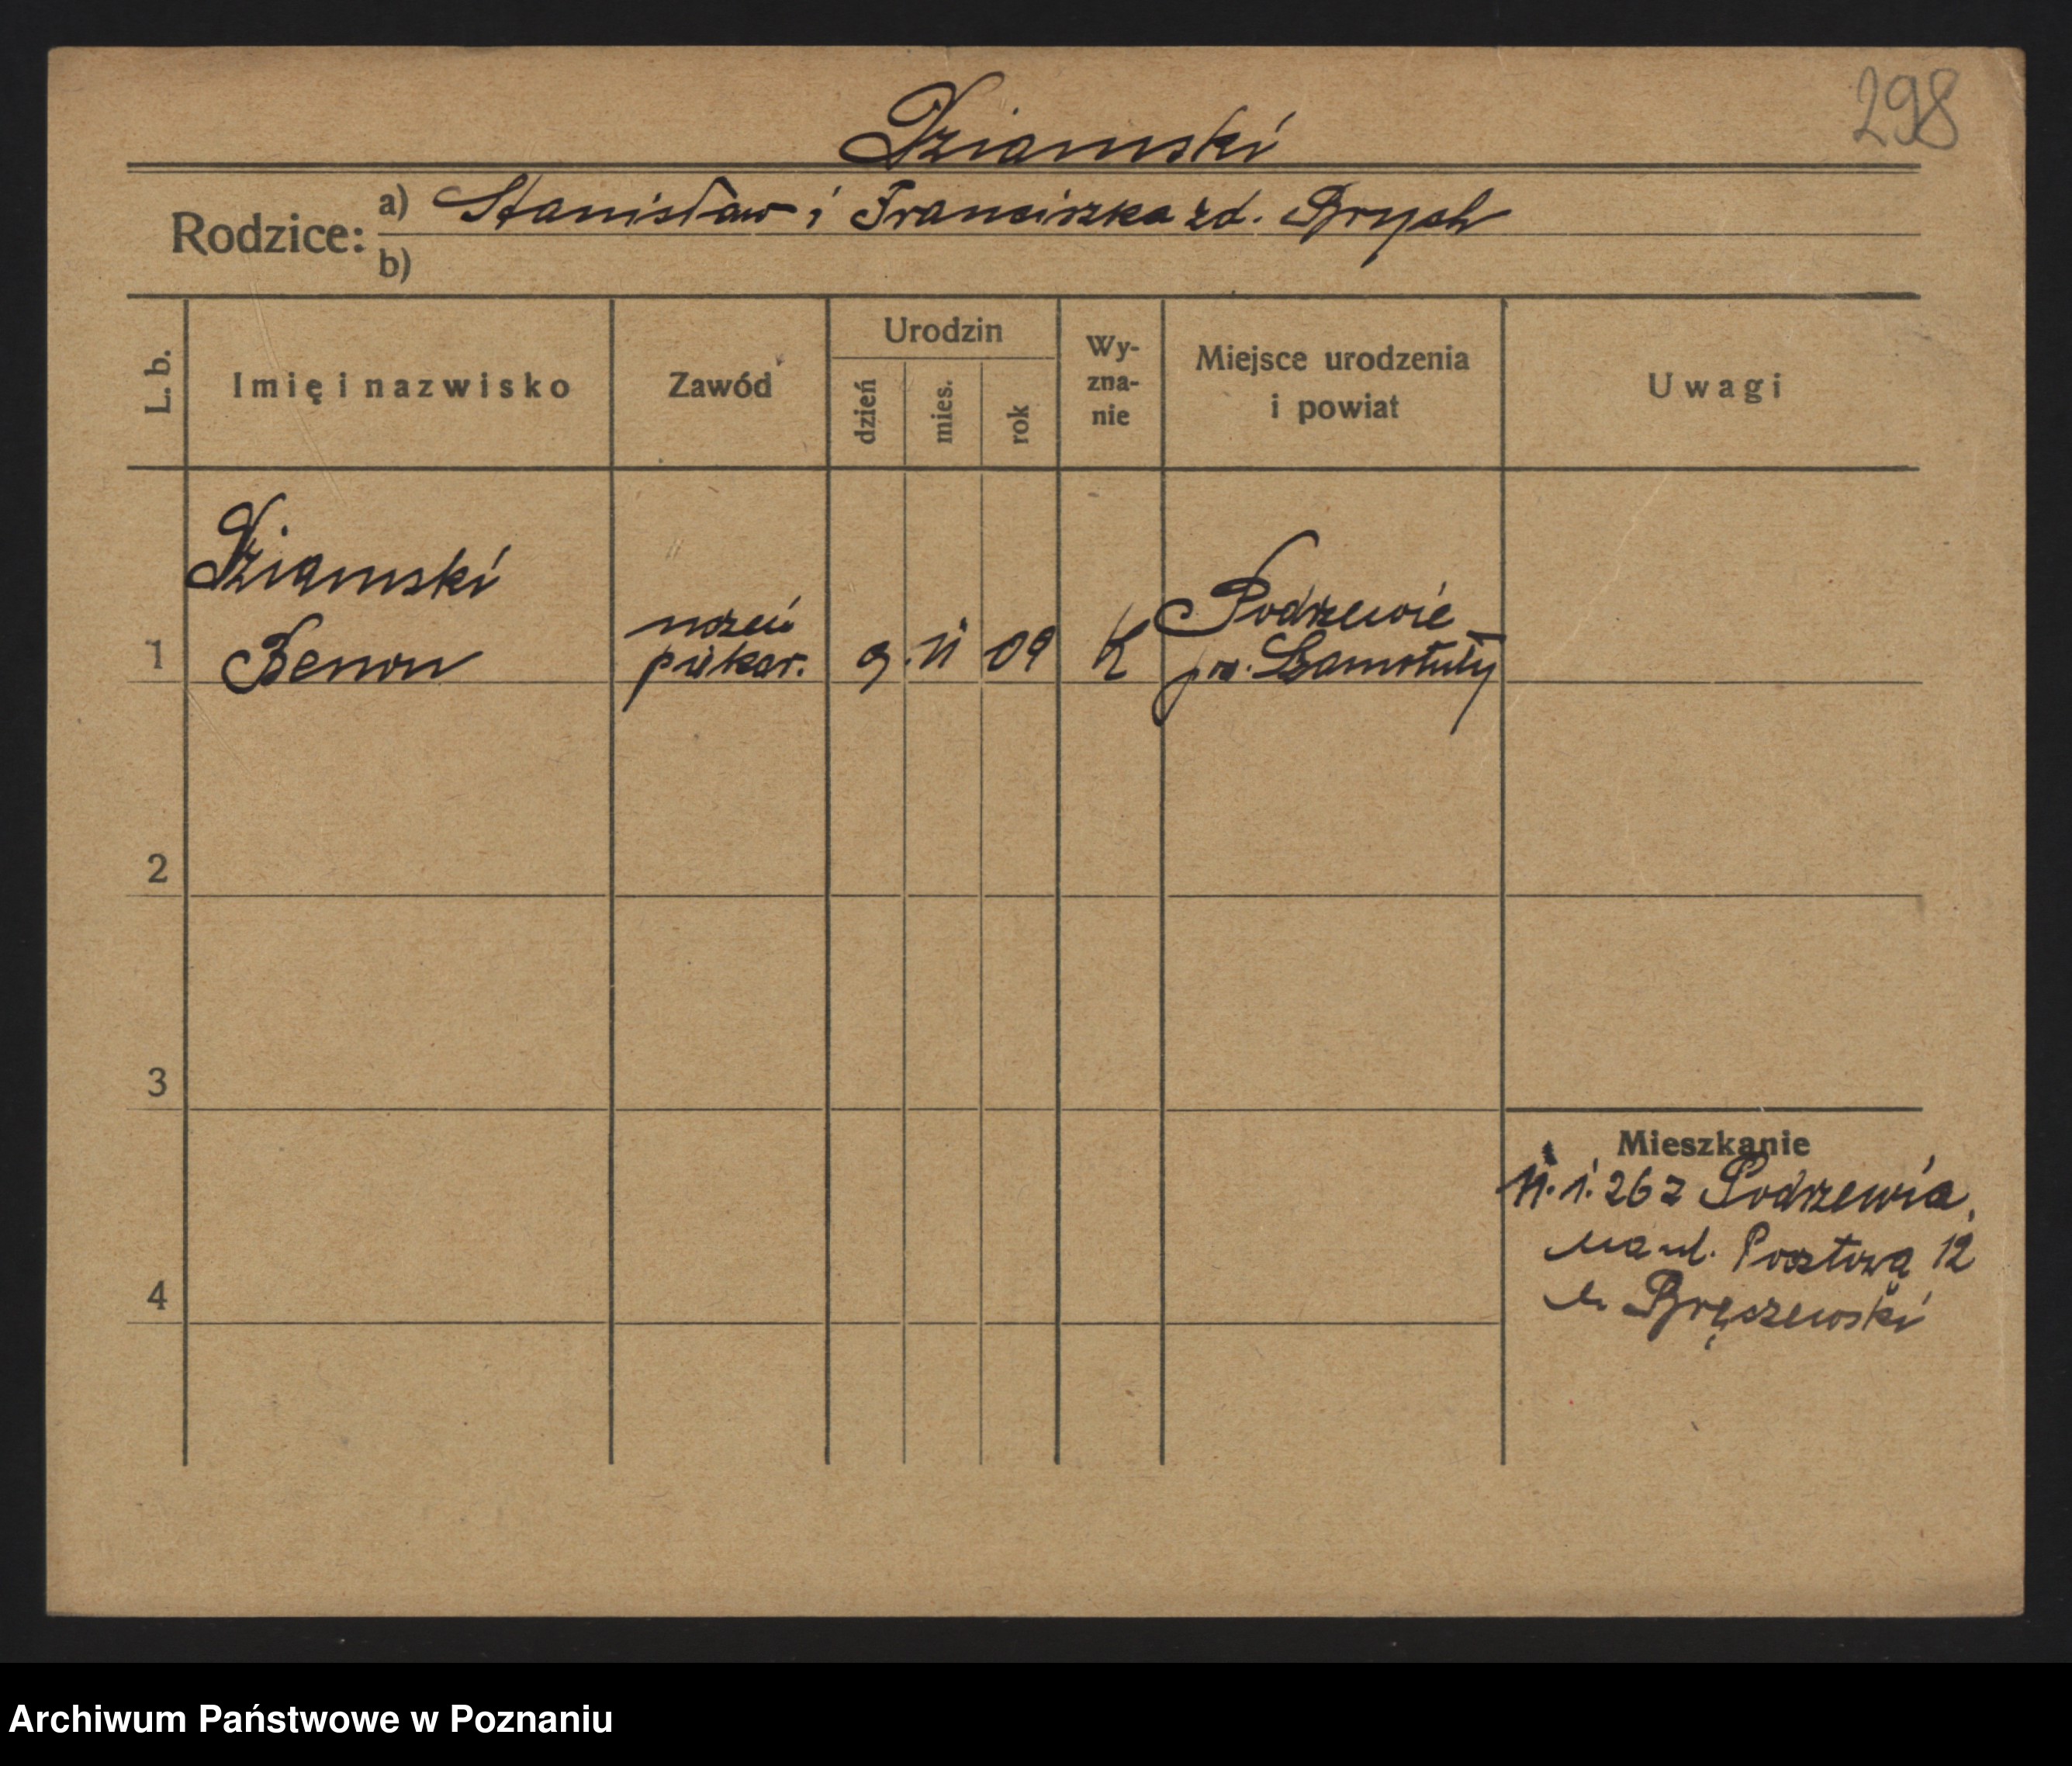 298
Dziamski
Rodzice: a) Stanisław i Franciszka zd. Brych
b)
L. b. Imię i nazwisko Zawód Urodzin dzień mies. rok Wy-zna-nie Miejsce urodzenia i powiat Uwagi
Dziamski
1 Benon uczeń piekar. 9. 11 09 K Podrzewie pw. Szamotuły
2
3
4
Mieszkanie
11. 1. 26 z Podrzewia,
na ul. Pocztową 12
u Bręczewski
Archiwum Państwowe w Poznaniu